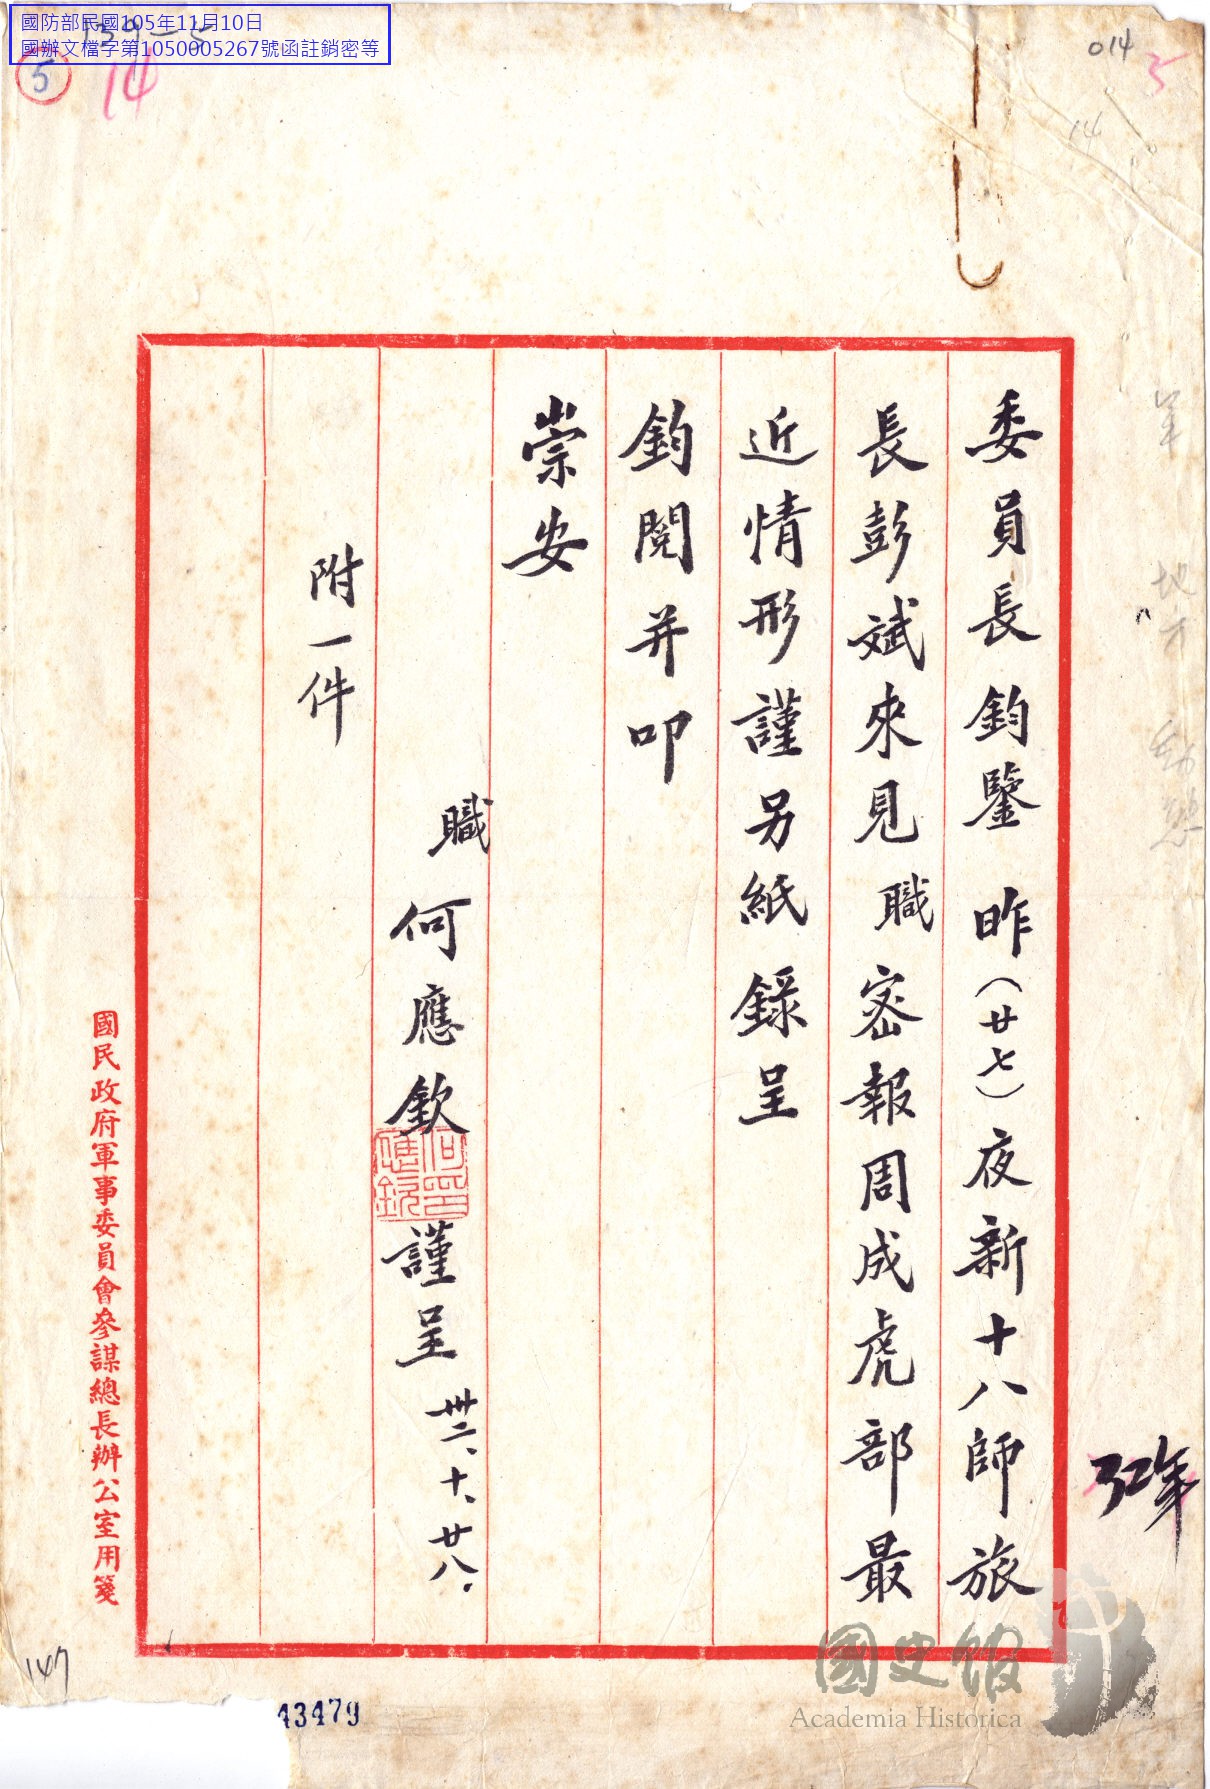 國防部民國105年11月10日
國辦文檔字第1050005267號函註銷密等
139-5
5
14
014
5
14
委員長鈞鑒 昨(廿七)夜新十八師旅
長彭斌來見職密報周成虎部最
近情形謹另紙錄呈
鈞閱并叩
崇安
職何應欽謹呈 卅二、十、廿八、
何應欽印
附一件
國民政府軍事委員會參謀總長辦公室用箋
地方
動態
32年
147
43479
國史館
Academia Historica